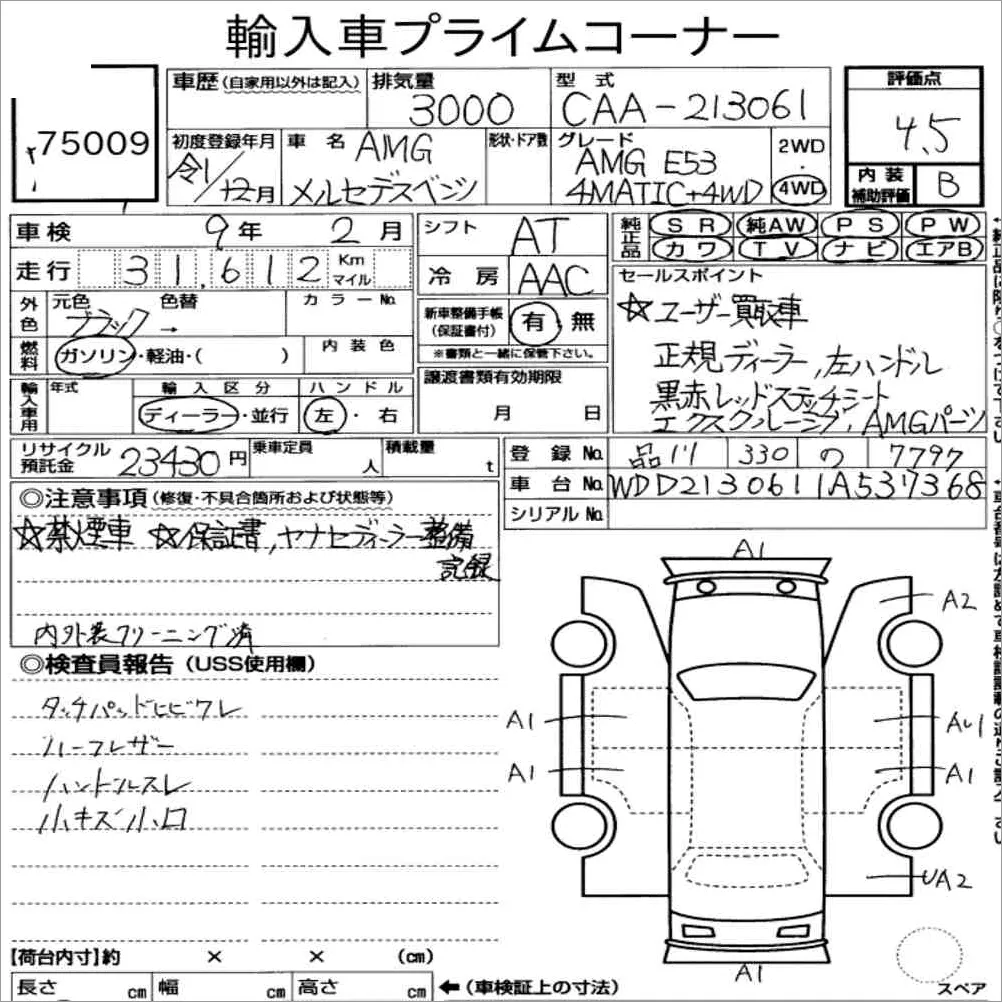 輸入車プライムコーナー
75009
車歴(自家用以外は記入)
排気量
3000
型式
CAA-213061
評価点
4.5
初度登録年月
令1/12月
車名
AMG
メルセデスベンツ
形状・ドア数
グレード
AMG E53
4MATIC+4WD
2WD
・
4WD
内装
補助評価
B
車検 9年 2月
走行 31,612 Km マイル
シフト AT
冷房 AAC
純正品
SR 純AW PS PW
カワ TV ナビ エアB
外色
元色 色替 カラーNo.
ブラック →
燃料
ガソリン・軽油・( )
内装色
新車整備手帳
(保証書付)
有・無
※書類と一緒に保管下さい。
セールスポイント
☆ユーザー買取車
正規ディーラー,左ハンドル
黒赤レッドステッチシート
エクスクルーシブ,AMGパーツ
輸入車用
年式
輸入区分
ディーラー・並行
ハンドル
左・右
譲渡書類有効期限
月 日
リサイクル
預託金
23430円
乗車定員
人
積載量
t
登録No. 品川 330 の 7797
車台No. WDD2130611A537368
シリアルNo.
◎注意事項(修復・不具合箇所および状態等)
☆禁煙車 ☆保証書,ヤナセディーラー整備
記録
内外装クリーニング済
◎検査員報告(USS使用欄)
タッチパッドヒビワレ
ハーフレザー
ハンドルスレ
小キズ小凹
A1
A2
A1
AU1
A1
A1
UA2
A1
スペア
【荷台内寸】約 × × (cm)
長さ cm 幅 cm 高さ cm
←(車検証上の寸法)